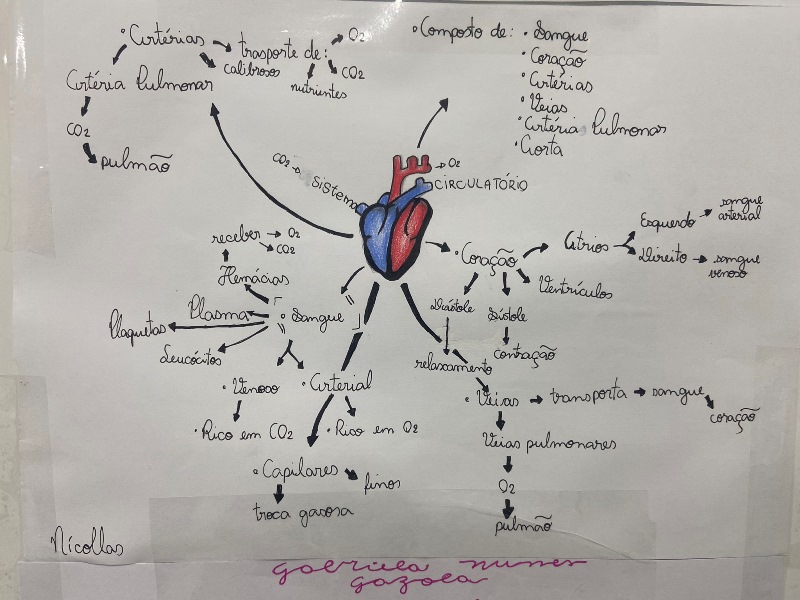 • Artérias
trasporte de:
O2
CO2
nutrientes
calibrosos
Artéria Pulmonar
CO2
pulmão
• Composto de:
• Sangue
• Coração
• Artérias
• Veias
• Artéria Pulmonar
• Aorta
CO2
O2
SISTEMA CIRCULATÓRIO
• Coração
Átrios
Esquerdo
sangue
arterial
Direito
sangue
venoso
Ventrículos
Diástole
Sístole
relaxamento
contração
receber
O2
CO2
Hemácias
Plasma
• Sangue
Plaquetas
Leucócitos
• Venoso
• Arterial
• Rico em CO2
• Rico em O2
• Capilares
finos
troca gasosa
• Veias
transporta
sangue
coração
Veias pulmonares
O2
pulmão
Nicollas
gabriela nunes
gazola